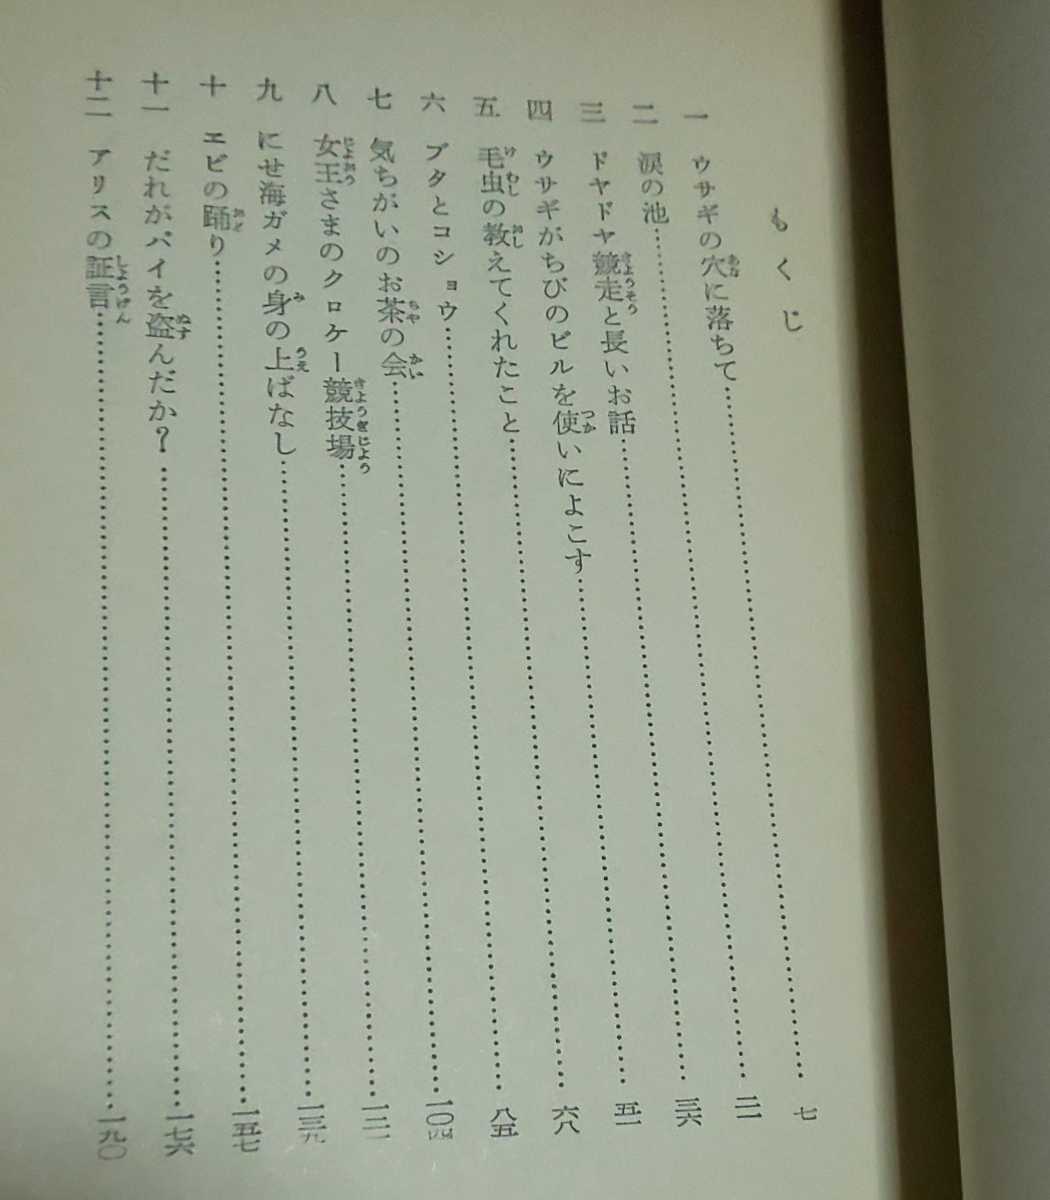 もくじ
一 ウサギの穴に落ちて……七
二 涙の池……二一
三 ドヤドヤ競走と長いお話……三六
四 ウサギがちびのビルを使いによこす……五一
五 毛虫の教えてくれたこと……六八
六 ブタとコショウ……八五
七 気ちがいのお茶の会……一〇四
八 女王さまのクロケー競技場……一二一
九 にせ海ガメの身の上ばなし……一三九
十 エビの踊り……一五七
十一 だれがパイを盗んだか?……一七六
十二 アリスの証言……一九〇